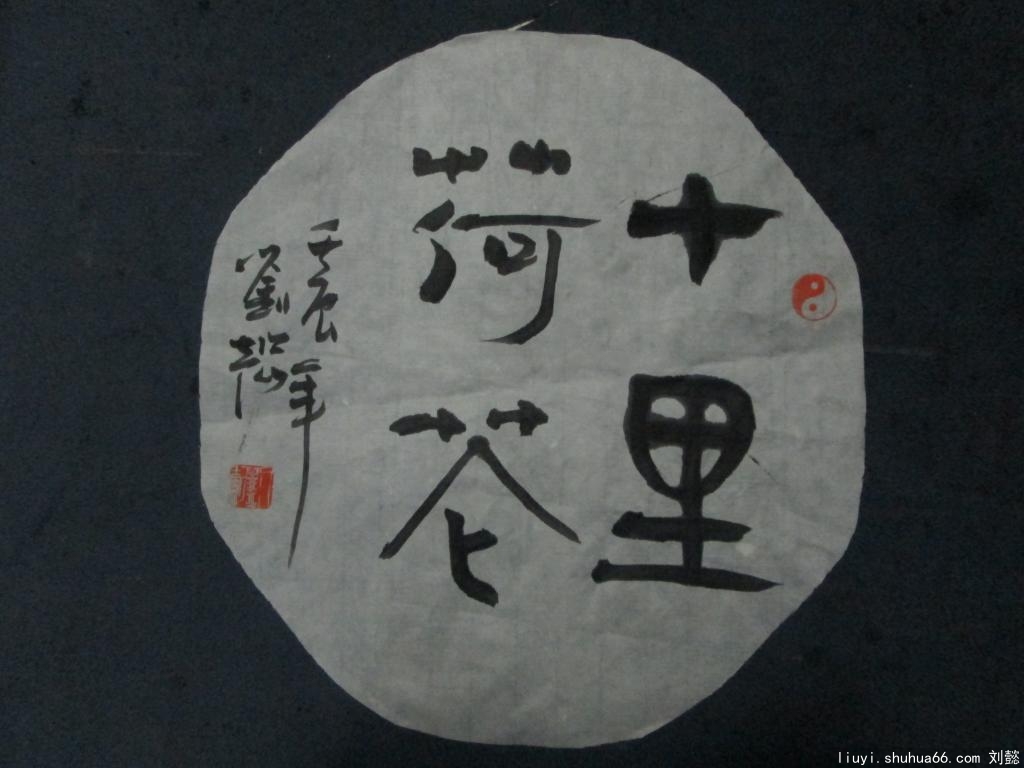 十里
荷花
壬辰年
刘懿
liuyi.shuhua66.com 刘懿